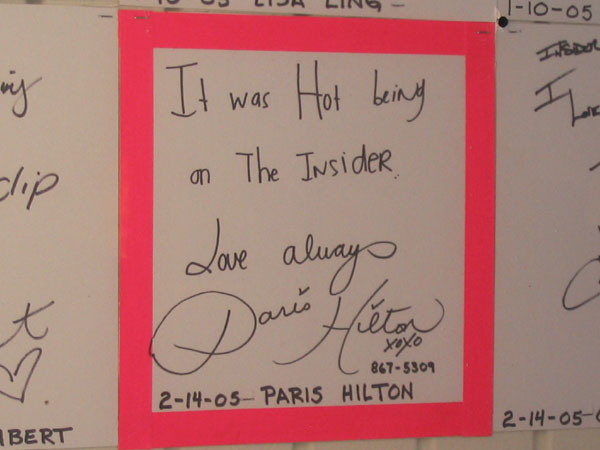 LISA LING -
1-10-05
It was Hot being
on The INsider.
Love always
Paris Hilton
xoxo
867-5309
2-14-05- PARIS HILTON
clip
2-14-05-